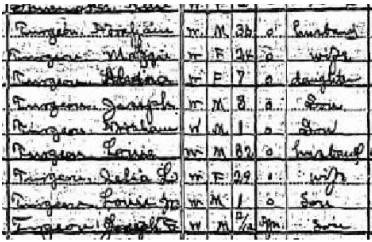 Turgeon W M 36 0 husband
Turgeon Maggie W F 24 0 wife
Turgeon W F 7 0 daughter
Turgeon Joseph W M 8 0 Son
Turgeon W M 1 0 Son
Turgeon Louis W M 32 0 husband
Turgeon Delia L. W F 29 0 wife
Turgeon Louis W M 1 0 Son
Turgeon Joseph W M Son